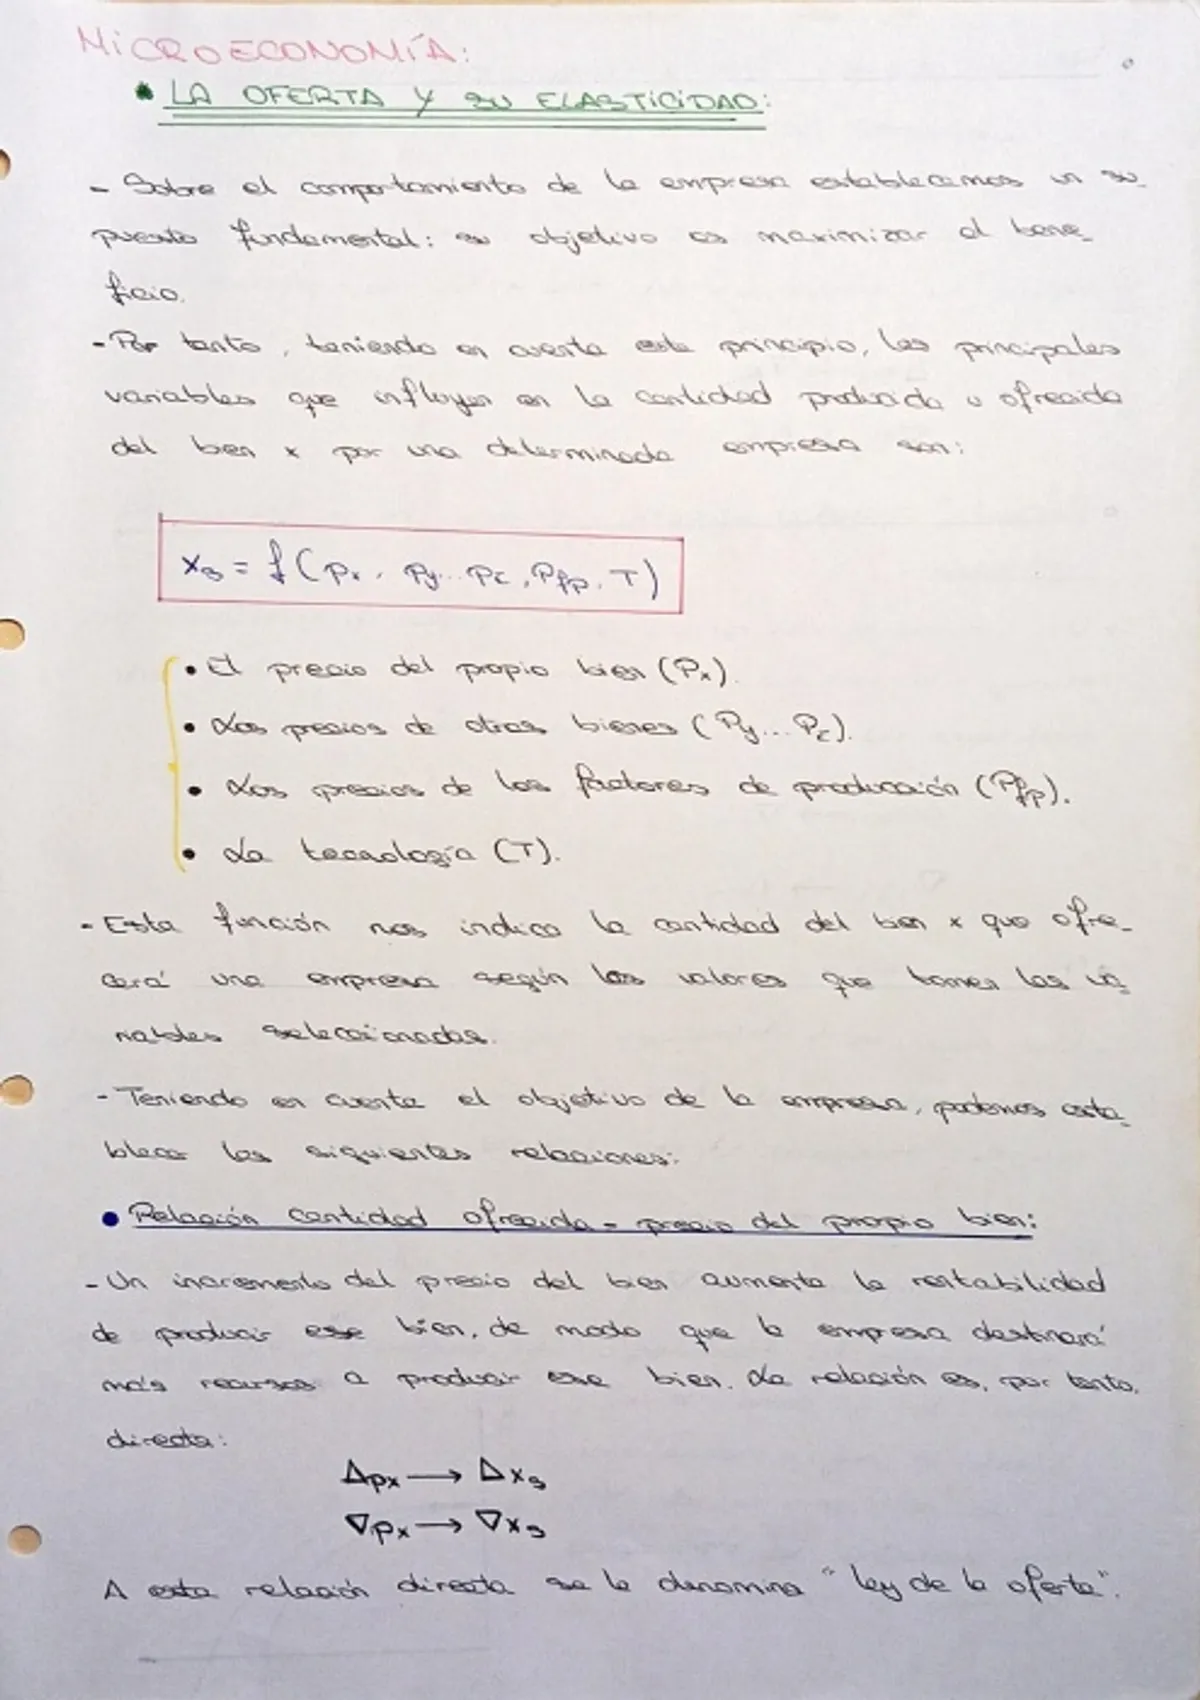 MICROECONOMÍA:
• LA OFERTA Y SU ELASTICIDAD:
- Sobre el comportamiento de la empresa establecemos un su_
puesto fundamental: su objetivo es maximizar el bene_
ficio.
- Por tanto, teniendo en cuenta este principio, las principales
variables que influyen en la cantidad producida u ofrecida
del bien x por una determinada empresa son:
Xs = f (Px, Py... Pz, Pfp, T)
• El precio del propio bien (Px).
• Los precios de otros bienes (Py... Pz).
• Los precios de los factores de producción (Pfp).
• La tecnología (T).
- Esta función nos indica la cantidad del bien x que ofre_
cerá una empresa según los valores que tomen las va_
riables seleccionadas.
- Teniendo en cuenta el objetivo de la empresa, podemos esta_
blecer las siguientes relaciones:
• Relación cantidad ofrecida - precio del propio bien:
- Un incremento del precio del bien aumenta la rentabilidad
de producir ese bien, de modo que la empresa destinará
más recursos a producir ese bien. La relación es, por tanto,
directa:
Δpx → Δxs
∇px → ∇xs
A esta relación directa se la denomina "ley de la oferta".